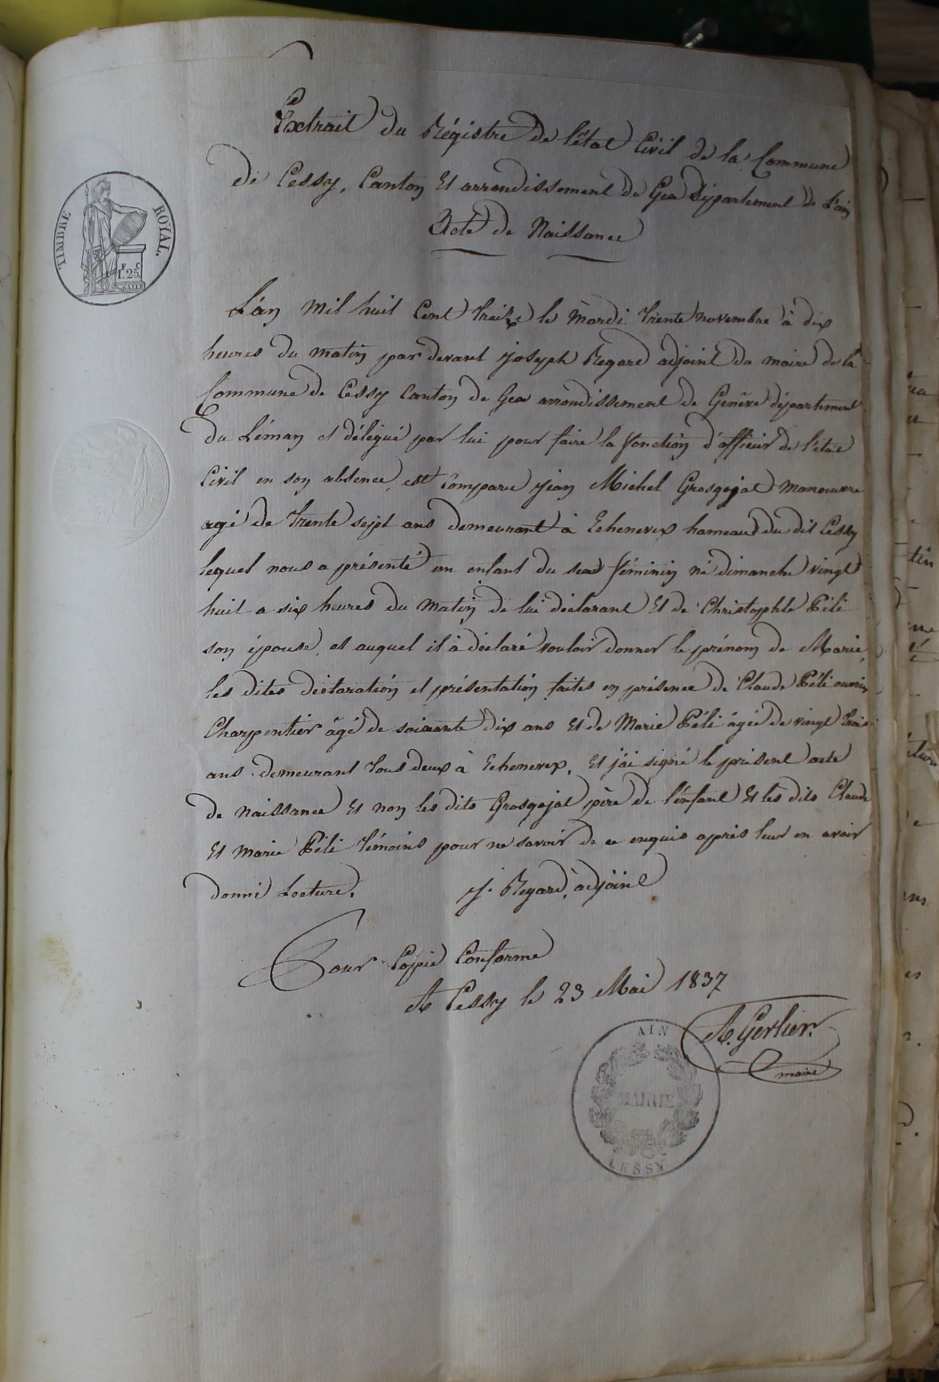 Extrait du Régistre de l'état Civil de la Commune
de Cessy, Canton Et arrondissement de Gex Département de l'ain
Acte de Naissance
TIMBRE ROYAL.
F. C.
1. 25
L'an mil huit Cent treize le Mardi trente novembre à dix
heures du matin par devant joseph Regard adjoint du maire de la
Commune de Cessy Canton de Gex arrondissement de Genève département
du Léman et délégué par lui pour faire la fonction d'officier de l'état
Civil en son absence, est Comparu jean Michel Grosgojat Manoeuvre
agé de trente sept ans demeurant à Echenevex hameau du dit Cessy
lequel nous a présenté un enfant du sexe féminin né dimanche vingt
huit a six heures du matin de lui déclarant Et de Christophle Péli
son épouse, et auquel il à déclaré vouloir donner le prénom de Marie,
les dites déclaration et présentation faites en présence de Claude Péli ouvrier
Charpentier âgé de soixante dix ans Et de Marie Péli âgée de vingt trois
ans demeurant tous deux à Echenevex, Et j'ai signé le présent acte
de naissance Et non les dits Grosgojat père de l'enfant Et les dits Claude
Et Marie Péli témoins pour ne savoir de ce enquis après leur en avoir
donné Lecture.
J. Regard, adjoint
Pour Copie Conforme
A Cessy le 23 Mai 1837
A. Gerlier.
maire
AIN
MAIRIE
CESSY